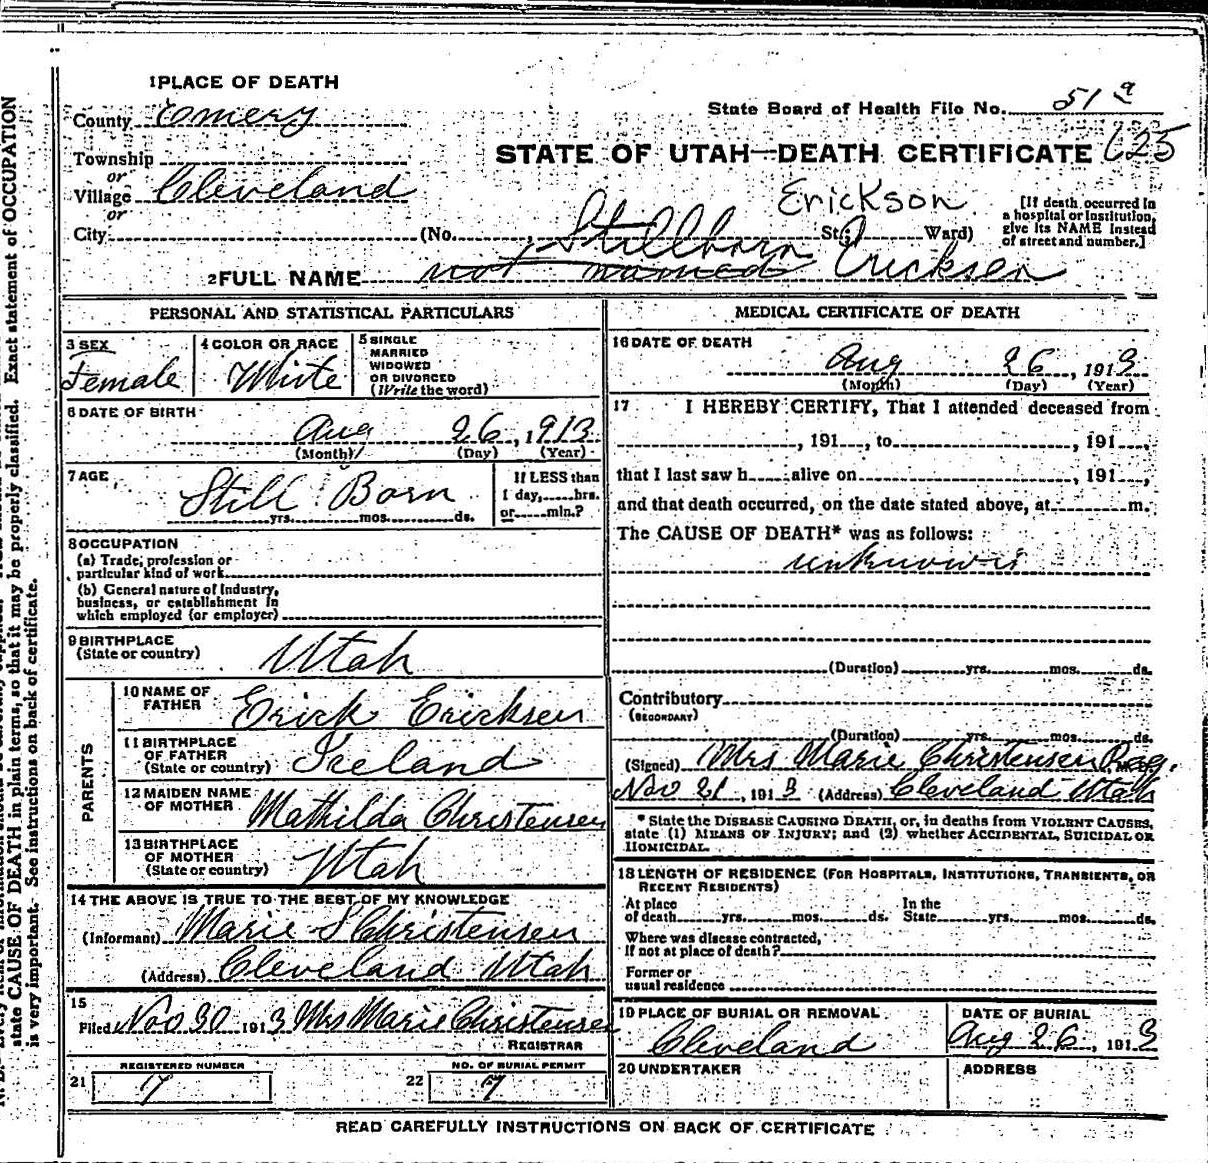 1 PLACE OF DEATH
County Emery
State Board of Health File No. 51 a
Township
or
STATE OF UTAH—DEATH CERTIFICATE 625
Village Cleveland
or
Erickson
[If death occurred in a hospital or institution, give its NAME instead of street and number.]
City (No. , St.; Ward)
Stillborn
2 FULL NAME not named Ericksen
PERSONAL AND STATISTICAL PARTICULARS
3 SEX
Female
4 COLOR OR RACE
White
5 SINGLE
MARRIED
WIDOWED
OR DIVORCED
(Write the word)
6 DATE OF BIRTH
Aug 26, 1913
(Month) (Day) (Year)
7 AGE
Still Born
yrs. mos. ds.
If LESS than
1 day, hrs.
or min.?
8 OCCUPATION
(a) Trade, profession or
particular kind of work
(b) General nature of industry,
business, or establishment in
which employed (or employer)
9 BIRTHPLACE
(State or country) Utah
PARENTS
10 NAME OF
FATHER Erick Ericksen
11 BIRTHPLACE
OF FATHER
(State or country) Iceland
12 MAIDEN NAME
OF MOTHER Mathilda Christensen
13 BIRTHPLACE
OF MOTHER
(State or country) Utah
14 THE ABOVE IS TRUE TO THE BEST OF MY KNOWLEDGE
(Informant) Marie S Christensen
(Address) Cleveland Utah
15
Filed Nov 30 1913 Mrs Marie Christensen
REGISTRAR
REGISTERED NUMBER
21 7
NO. OF BURIAL PERMIT
22 7
MEDICAL CERTIFICATE OF DEATH
16 DATE OF DEATH
Aug 26, 1913
(Month) (Day) (Year)
17 I HEREBY CERTIFY, That I attended deceased from
, 191 , to , 191 ,
that I last saw h alive on , 191 ,
and that death occurred, on the date stated above, at m.
The CAUSE OF DEATH* was as follows:
unknown
(Duration) yrs. mos. ds.
Contributory
(SECONDARY)
(Duration) yrs. mos. ds.
(Signed) Mrs Marie Christensen Reg.
Nov 21, 1913 (Address) Cleveland Utah
* State the DISEASE CAUSING DEATH, or, in deaths from VIOLENT CAUSES,
state (1) MEANS OF INJURY; and (2) whether ACCIDENTAL, SUICIDAL OR
HOMICIDAL.
18 LENGTH OF RESIDENCE (FOR HOSPITALS, INSTITUTIONS, TRANSIENTS, OR
RECENT RESIDENTS)
At place
of death yrs. mos. ds.
In the
State yrs. mos. ds.
Where was disease contracted,
If not at place of death?
Former or
usual residence
19 PLACE OF BURIAL OR REMOVAL
Cleveland
DATE OF BURIAL
Aug 26, 1913
20 UNDERTAKER
ADDRESS
READ CAREFULLY INSTRUCTIONS ON BACK OF CERTIFICATE
state CAUSE OF DEATH in plain terms, so that it may be properly classified. Exact statement of OCCUPATION
is very important. See instructions on back of certificate.